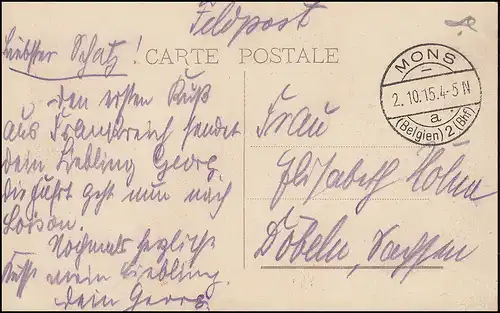 Feldpost
Liebster Schatz!
CARTE POSTALE
MONS
2.10.15.4-5 N
a
(Belgien) 2 (Bhf)
Den ersten Kuß
aus Frankreich sendet
dein Liebling Georg.
die Fahrt geht nun nach
Loison.
Nochmals herzliche
Küsse mein Liebling.
dein Georg
Frau
Elisabeth
Döbeln, Sachsen